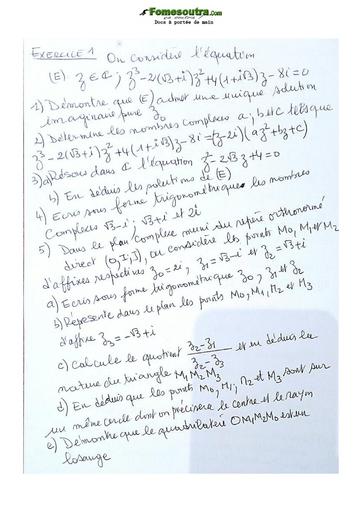 Fomesoutra.com
ça soutra !
Docs à portée de main
EXERCICE 1 On considère l'équation
(E) z ∈ ℂ ; z³-2(√3+i)z²+4(1+i√3)z-8i=0
1) Démontre que (E) admet une unique solution
imaginaire pure z₀
2) Détermine les nombres complexes a, b et c tels que
z³-2(√3+i)z²+4(1+i√3)z-8i=(z-2i)(az²+bz+c)
3) a) Résous dans ℂ l'équation z²-2√3z+4=0
b) En déduis les solutions de (E)
4) Ecris sous forme trigonométrique les nombres
complexes √3-i ; √3+i et 2i
5) Dans le plan complexe muni du repère orthonormé
direct (O, I, J), on considère les points M₀, M₁ et M₂
d'affixes respectives z₀=2i, z₁=√3-i et z₂=√3+i
a) Ecris sous forme trigonométrique z₀, z₁ et z₂
b) Représente dans le plan les points M₀, M₁, M₂ et M₃
d'affixe z₃=-√3+i
c) Calcule le quotient (z₂-z₁)/(z₂-z₃) et en déduis la
nature du triangle M₁M₂M₃
d) En déduis que les points M₀, M₁, M₂ et M₃ sont sur
un même cercle dont on précisera le centre et le rayon
e) Démontre que le quadrilatère OM₁M₂M₀ est un
losange